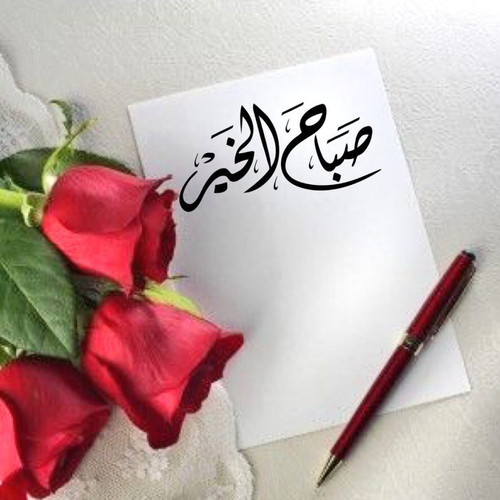 صَبَاحَ الْخَيْر